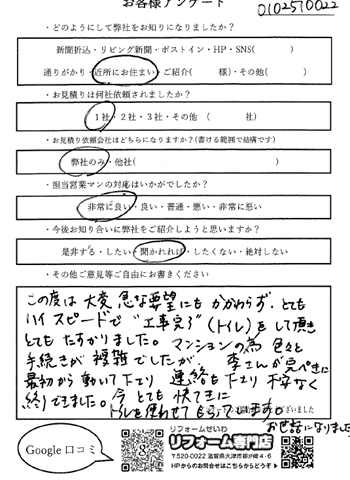 お客様アンケート
0102510022
・どのようにして弊社をお知りになりましたか?
新聞折込・リビング新聞・ポストイン・HP・SNS( )
通りがかり・近所にお住まい・ご紹介( 様)・その他( )
・お見積りは何社依頼されましたか?
1社・2社・3社・その他 ( 社)
・お見積り依頼会社はどちらになりますか?(書ける範囲で結構です)
弊社のみ・他社( )
・担当営業マンの対応はいかがでしたか?
非常に良い・良い・普通・悪い・非常に悪い
・今後お知り合いに弊社をご紹介しようと思いますか?
是非する・したい・聞かれれば・したくない・絶対しない
・その他ご意見等ご自由にお書きください
この度は大変急な要望にもかかわらず、とても
ハイスピードで"工事完了"(トイレ)をして頂き
とてもたすかりました。マンションの為 色々と
手続きが複雑でしたが、李さんが完ぺきに
最初から動いて下さり 連絡も下さり 不安なく
終りできました。今とても快てきに
トイレを使わせてもらっています。
お世話になりました
ございました
Google 口コミ
リフォームせいわ
リフォーム専門店
〒520-0022 滋賀県大津市柳が崎4-6
HPからのお問合せはこちらからどうぞ